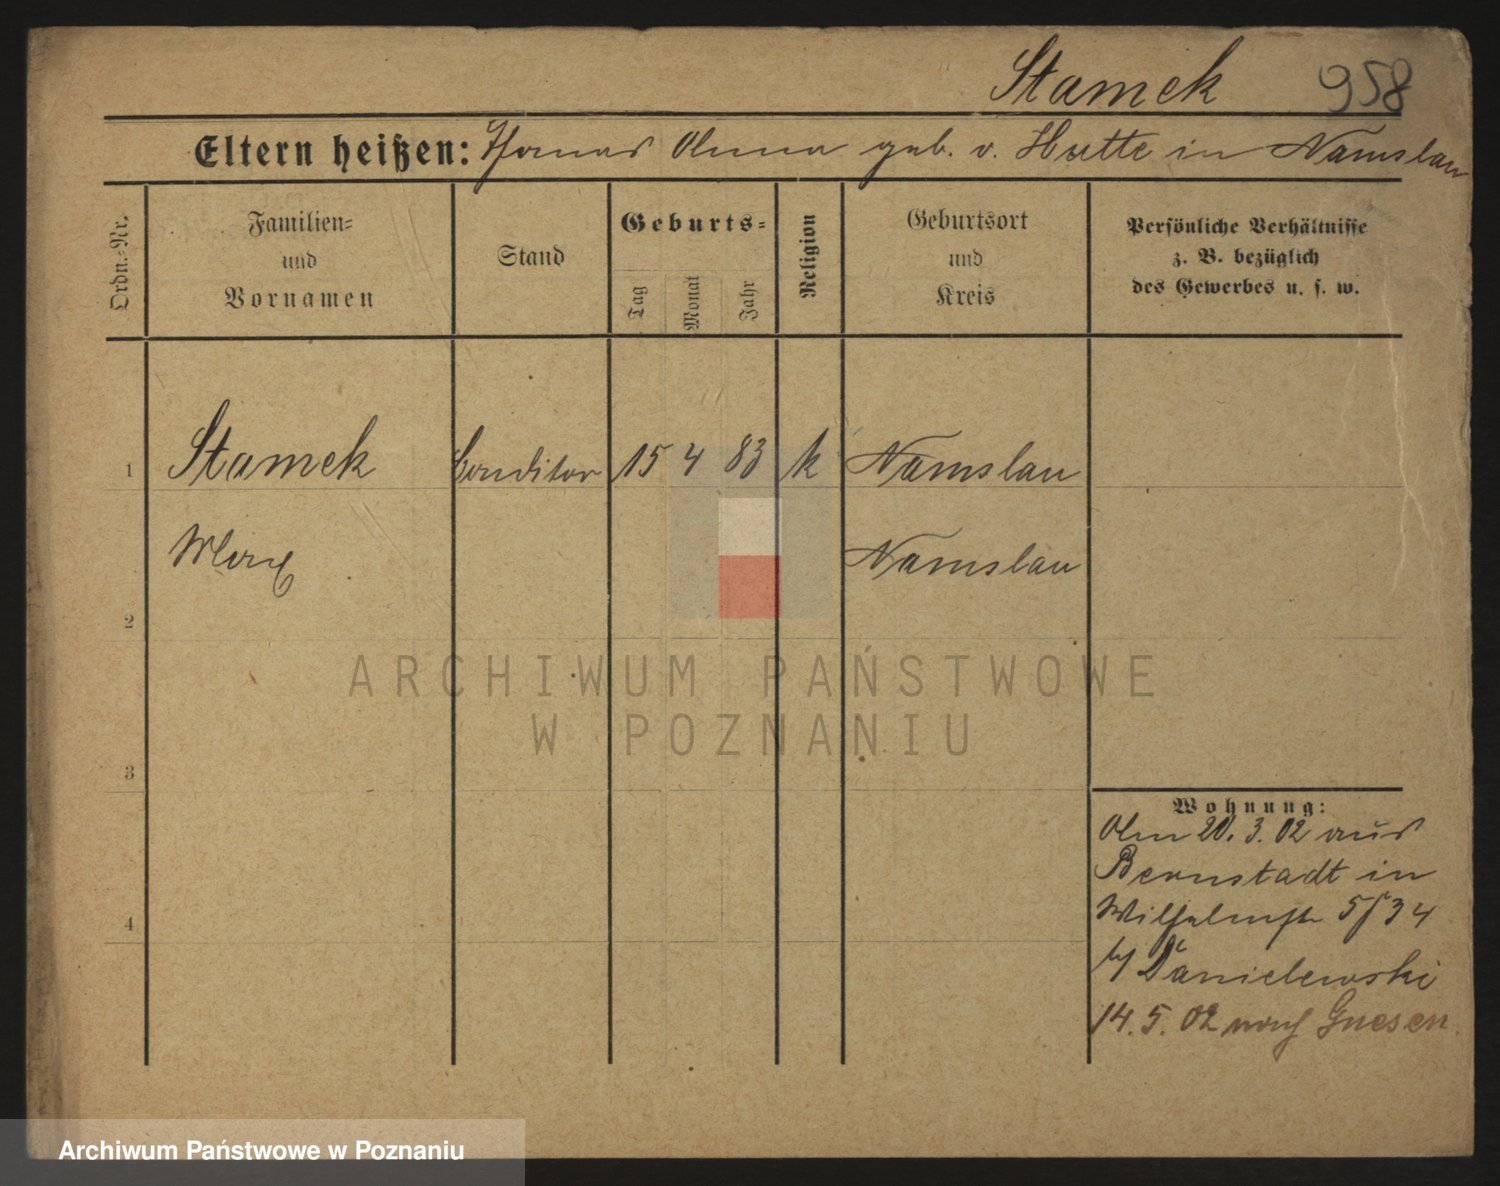 Stamek 958
Eltern heißen: Thomas Anna geb. v. Hutte in Namslau
Ordn.-Nr.
Familien-
und
Vornamen
Stand
Geburts-
Tag
Monat
Jahr
Religion
Geburtsort
und
Kreis
Persönliche Verhältnisse
z. B. bezüglich
des Gewerbes u. s. w.
1 Stamek Conditor 15 4 83 k Namslau
Max Namslau
2
ARCHIWUM PAŃSTWOWE
W POZNANIU
3
Wohnung:
Am 20. 3. 02 aus
Bernstadt in
Wilhelmstr 5/34
4
b/ Danielewski
14. 5. 02 nach Gnesen.
Archiwum Państwowe w Poznaniu